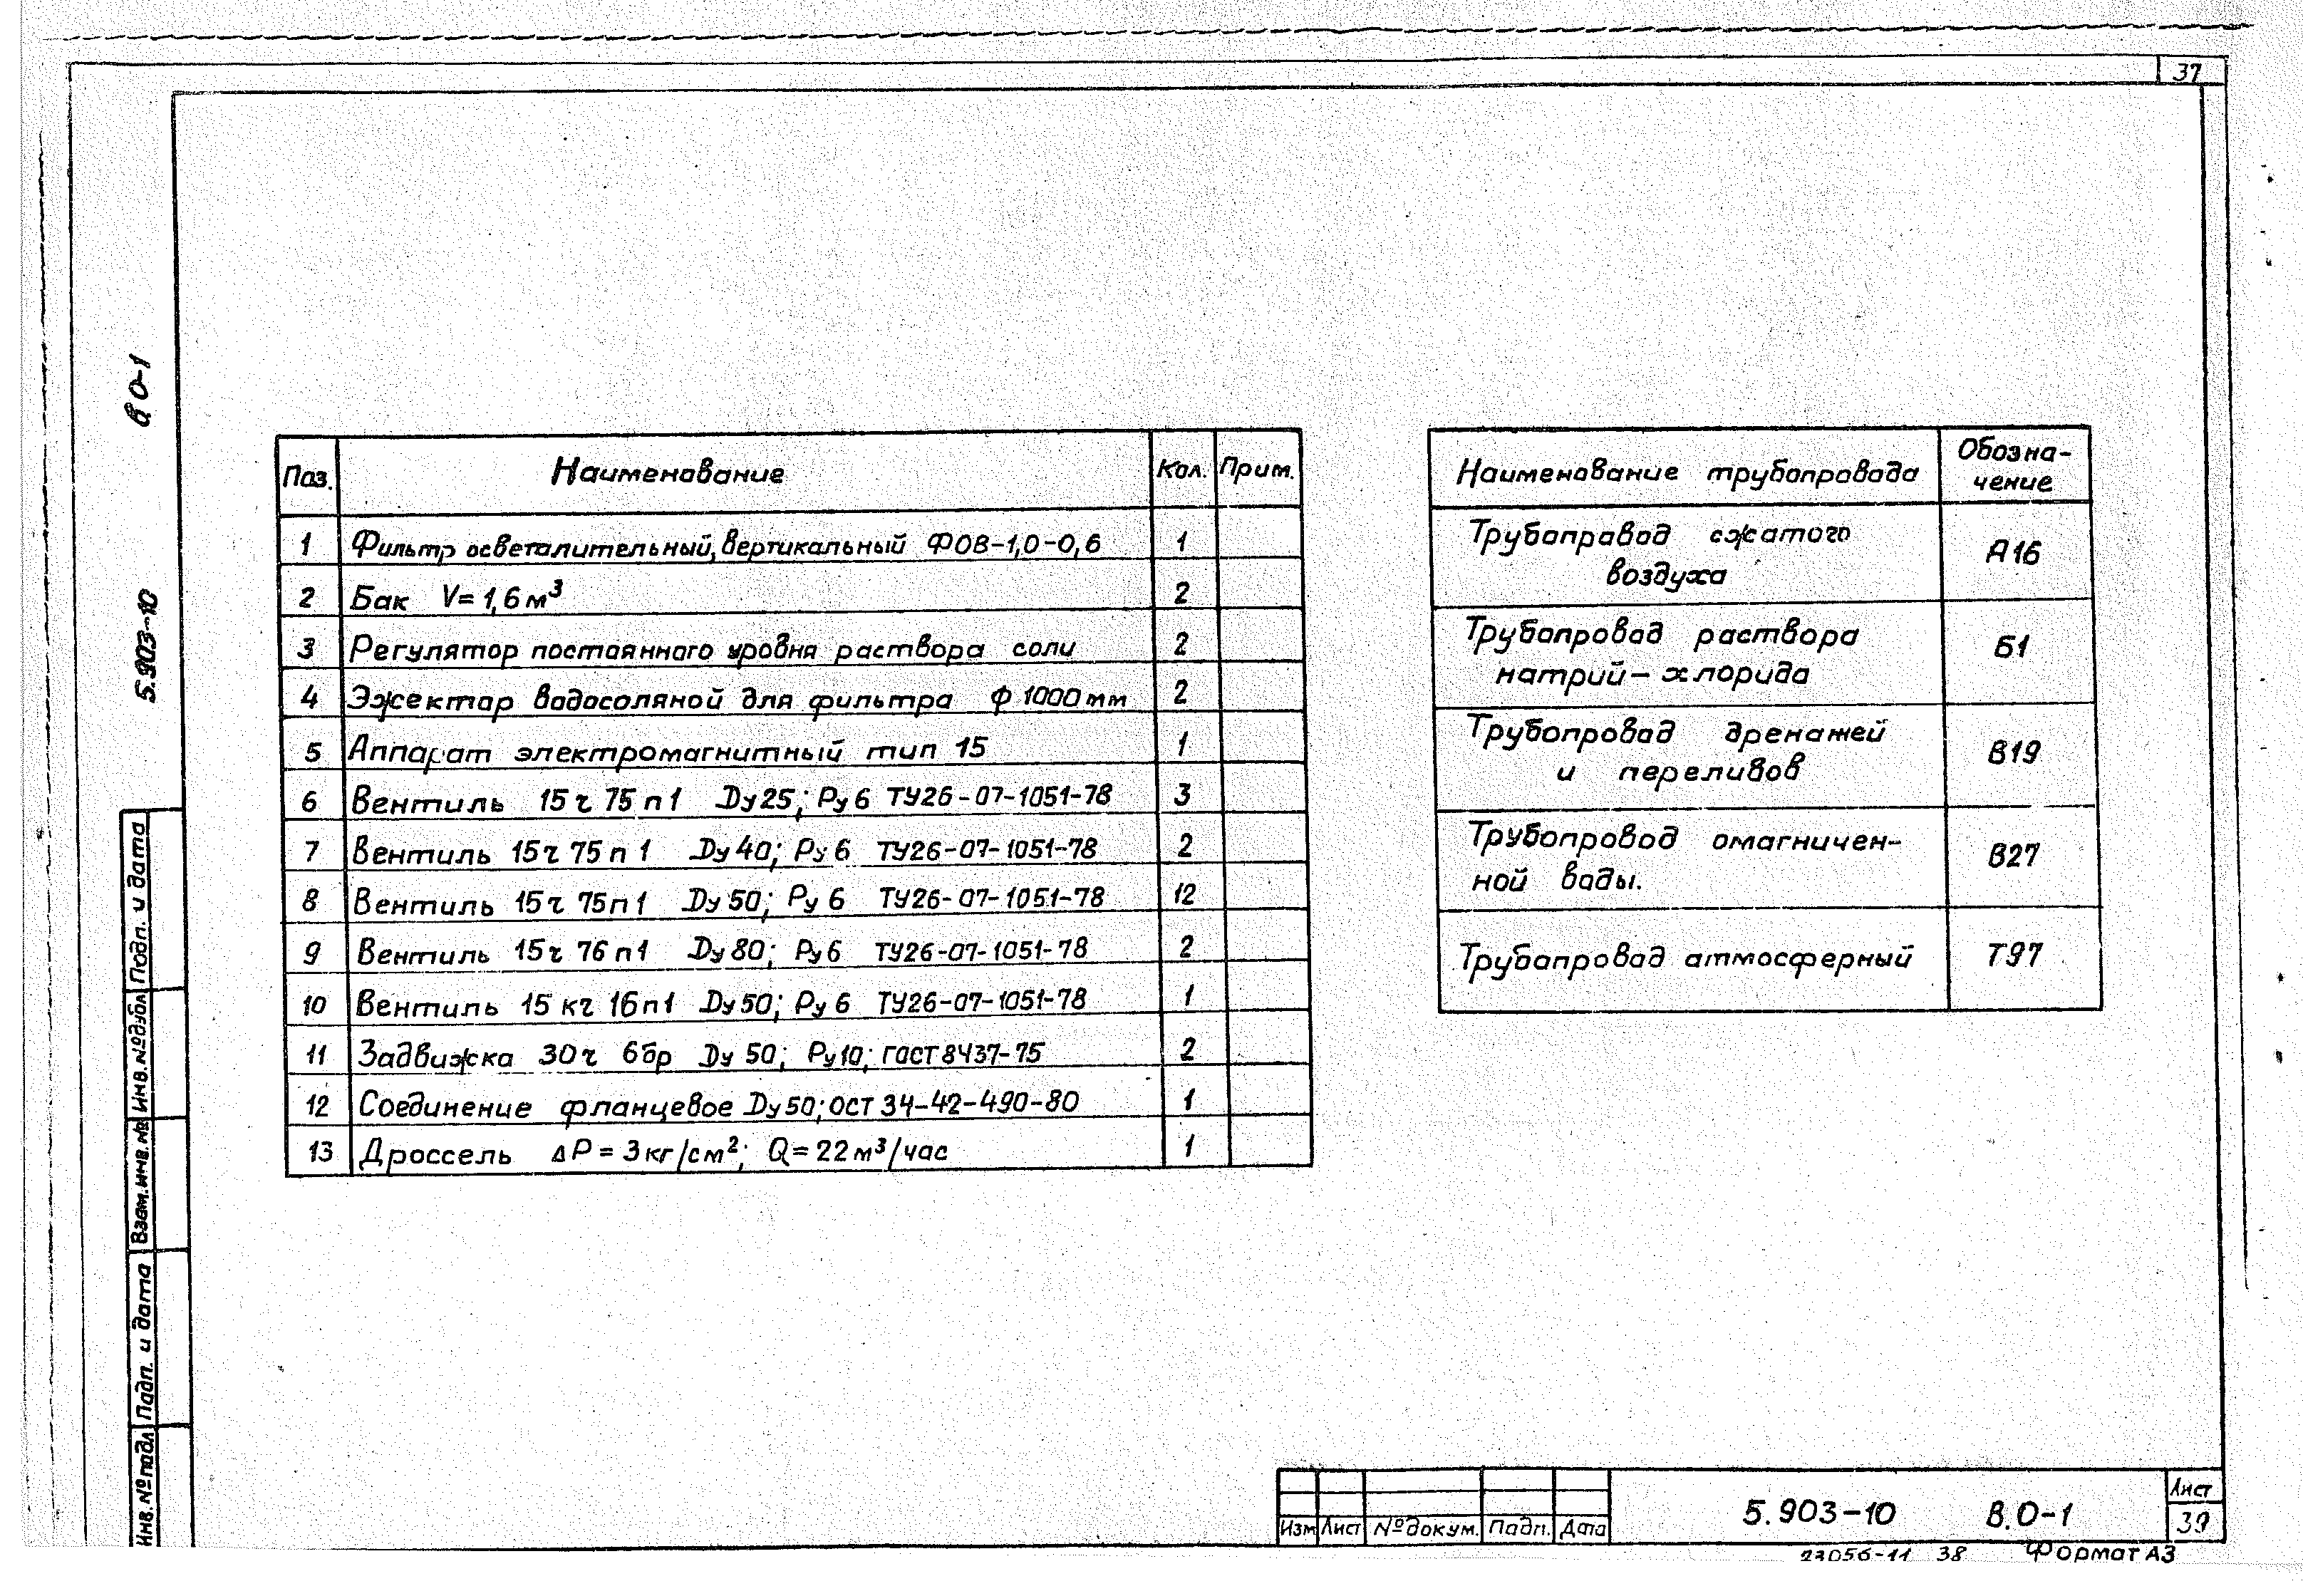 37
в 0-1
5.903-10
Поз. Наименование Кол. Прим.
1 Фильтр осветлительный, вертикальный ФОВ-1,0-0,6 1
2 Бак V=1,6м³ 2
3 Регулятор постоянного уровня раствора соли 2
4 Эжектор водосоляной для фильтра ф 1000мм 2
5 Аппарат электромагнитный тип 15 1
6 Вентиль 15ч 75п1 Dу25; Ру6 ТУ26-07-1051-78 3
7 Вентиль 15ч 75п1 Dу40; Ру6 ТУ26-07-1051-78 2
8 Вентиль 15ч 75п1 Dу50; Ру6 ТУ26-07-1051-78 12
9 Вентиль 15ч 76п1 Dу80; Ру6 ТУ26-07-1051-78 2
10 Вентиль 15кч 16п1 Dу50; Ру6 ТУ26-07-1051-78 1
11 Задвижка 30ч 6бр Dу 50; Ру10; ГОСТ 8437-75 2
12 Соединение фланцевое Dу50; ОСТ 34-42-490-80 1
13 Дроссель ΔР=3кг/см²; Q=22м³/час 1
Наименование трубопровода Обозна-
чение
Трубопровод сжатого
воздуха А16
Трубопровод раствора
натрий-хлорида Б1
Трубопровод дренажей
и переливов В19
Трубопровод омагничен-
ной воды. В27
Трубопровод атмосферный Т97
Подп. и дата
Инв.№дубл
Взам.инв.№
Подп. и дата
Инв.№подл
Изм Лист №докум. Подп. Дата
5.903-10 В.0-1
Лист
39
23056-11 38 Формат А3